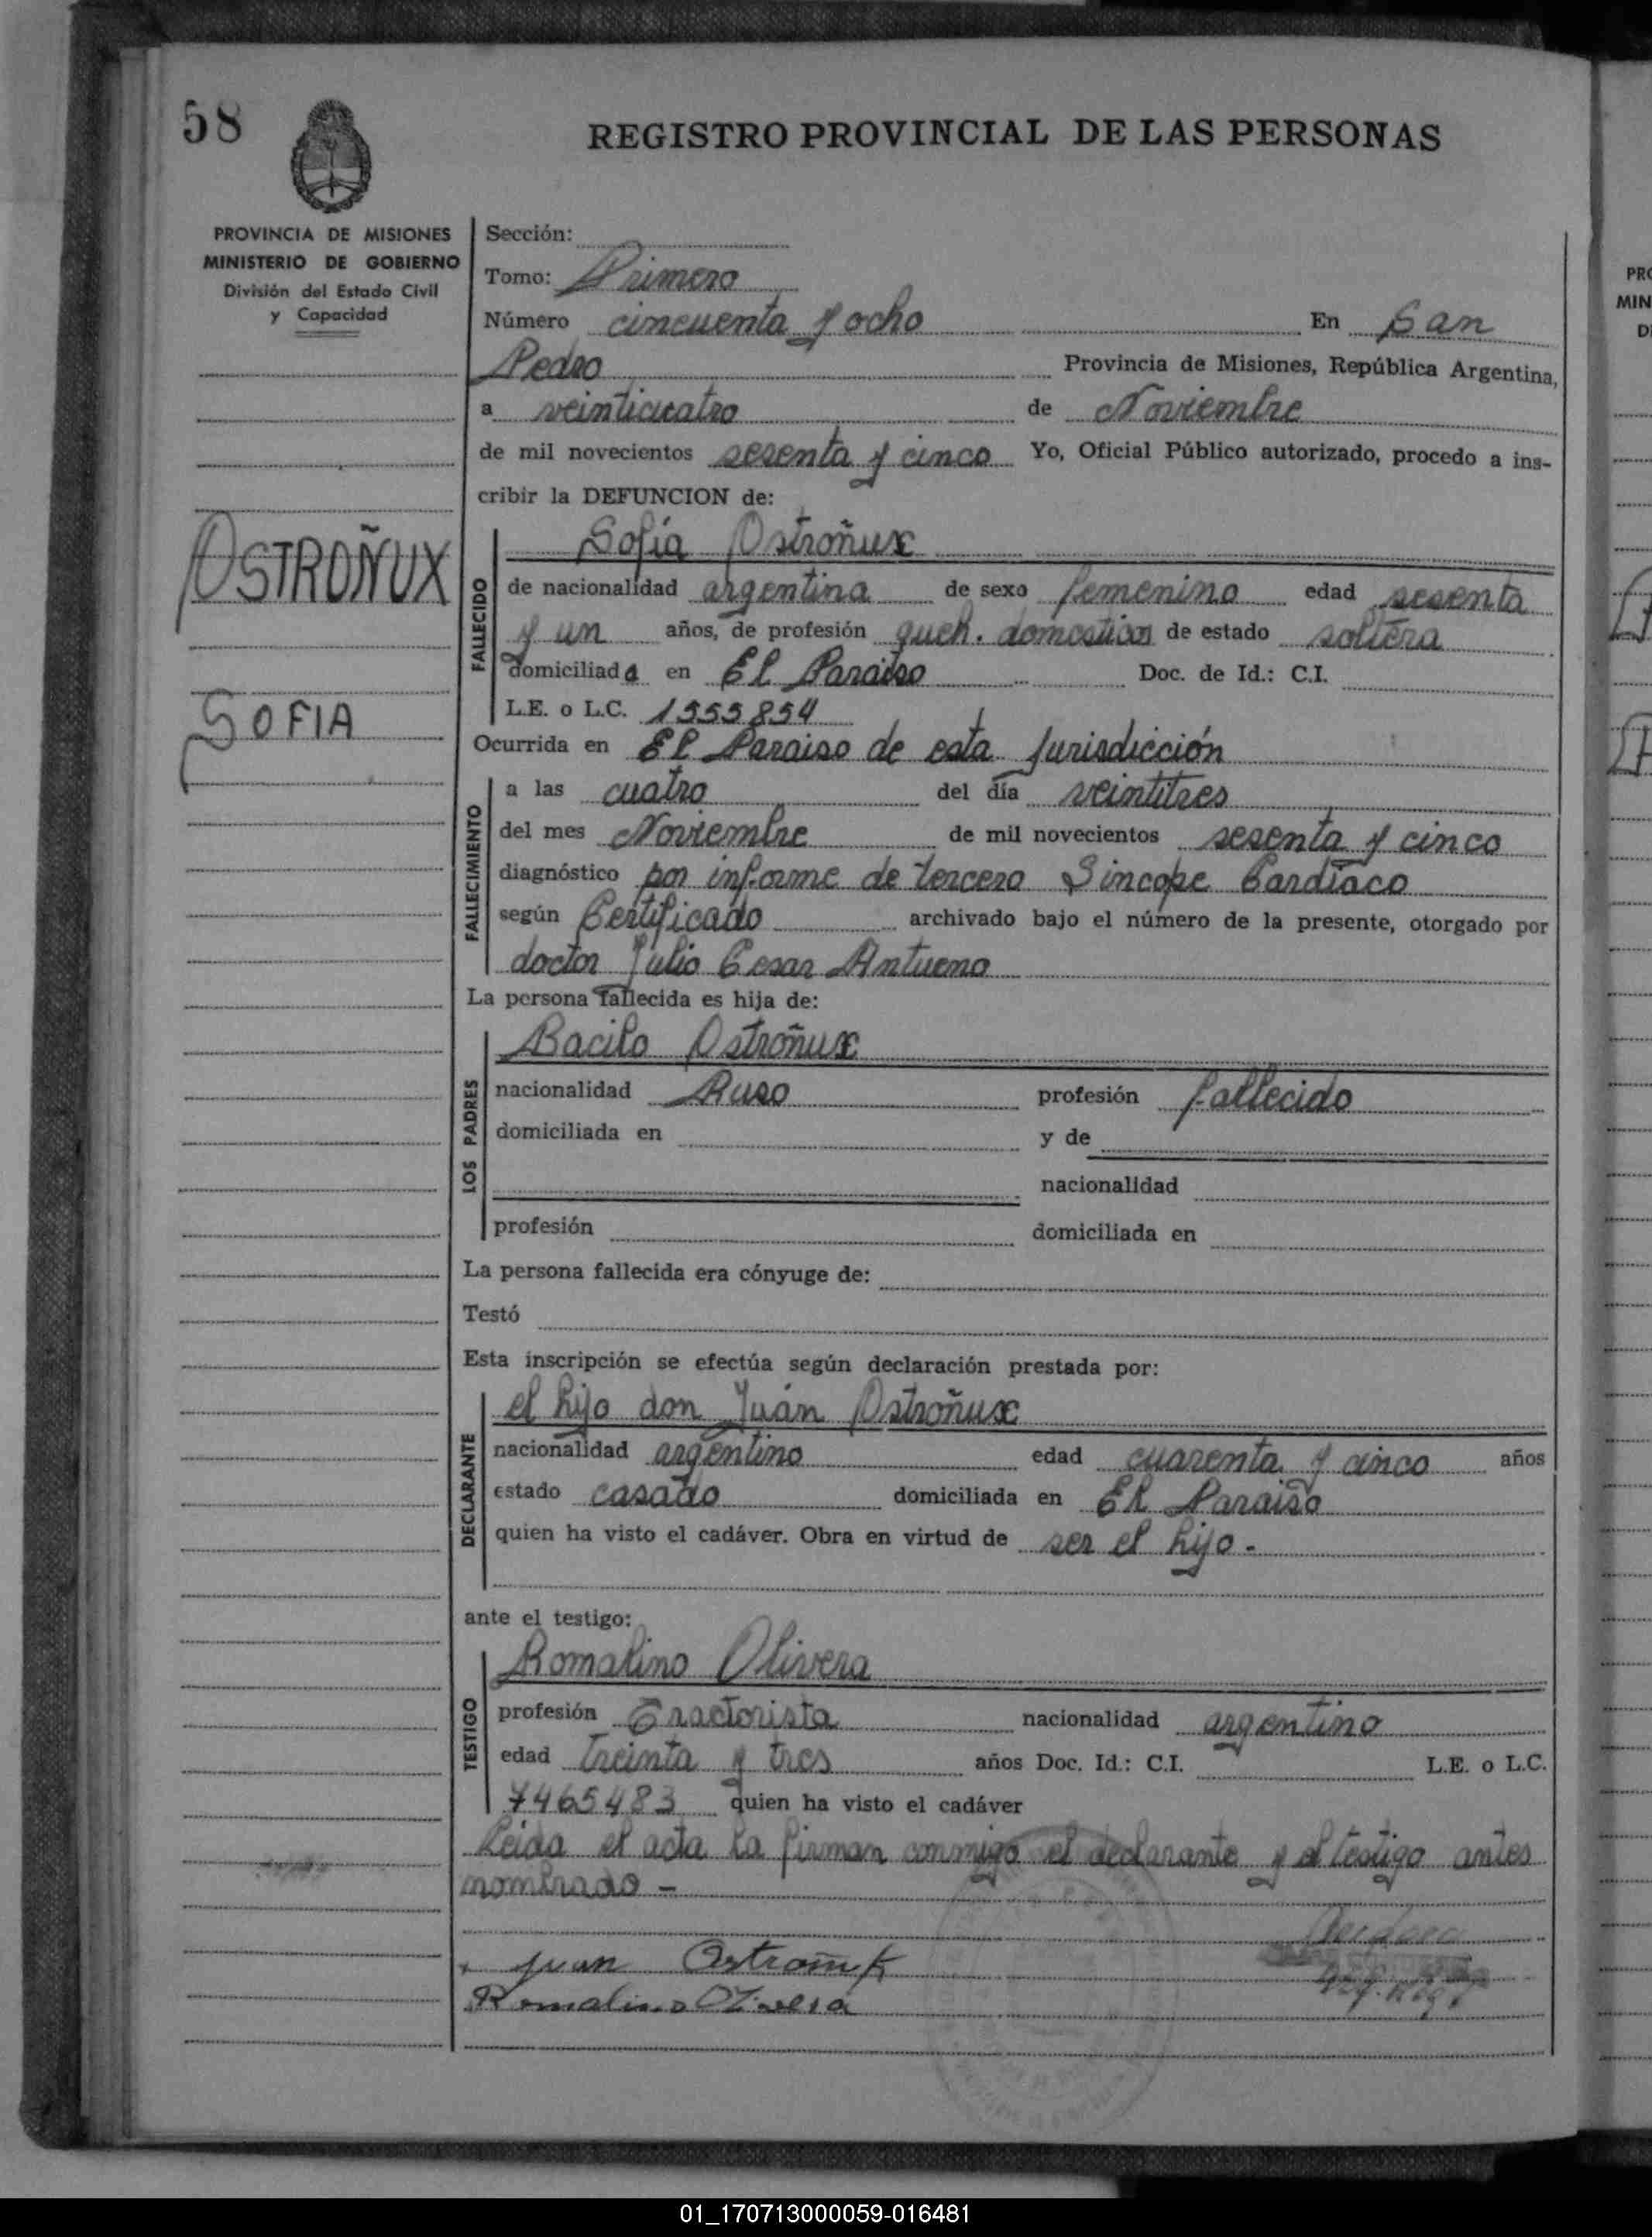 58
REGISTRO PROVINCIAL DE LAS PERSONAS
PROVINCIA DE MISIONES
MINISTERIO DE GOBIERNO
División del Estado Civil
y Capacidad
OSTROÑUX
SOFIA
Sección:
Tomo: Primero
Número cincuenta y ocho En San
Pedro Provincia de Misiones, República Argentina,
a veinticuatro de Noviembre
de mil novecientos sesenta y cinco Yo, Oficial Público autorizado, procedo a ins-
cribir la DEFUNCION de:
FALLECIDO
Sofía Ostroñux
de nacionalidad argentina de sexo femenino edad sesenta
y un años, de profesión queh. domesticos de estado soltera
domiciliada en El Paraiso Doc. de Id.: C.I.
L.E. o L.C. 1555854
Ocurrida en El Paraiso de esta Jurisdicción
FALLECIMIENTO
a las cuatro del día veintitres
del mes Noviembre de mil novecientos sesenta y cinco
diagnóstico por informe de tercero Sincope Cardíaco
según Certificado archivado bajo el número de la presente, otorgado por
doctor Julio Cesar Antueno
La persona fallecida es hija de:
LOS PADRES
Bacilo Ostroñux
nacionalidad Ruso profesión fallecido
domiciliada en y de
nacionalidad
profesión domiciliada en
La persona fallecida era cónyuge de:
Testó
Esta inscripción se efectúa según declaración prestada por:
DECLARANTE
el hijo don Juán Ostroñux
nacionalidad argentino edad cuarenta y cinco años
estado casado domiciliada en El Paraiso
quien ha visto el cadáver. Obra en virtud de ser el hijo.-
ante el testigo:
TESTIGO
Romalino Olivera
profesión Tractorista nacionalidad argentino
edad treinta y tres años Doc. Id.: C.I. L.E. o L.C.
7465483 quien ha visto el cadáver
Leida el acta la firman conmigo el declarante y el testigo antes
nombrado -
Juan
Romalino Olivera
01_170713000059-016481